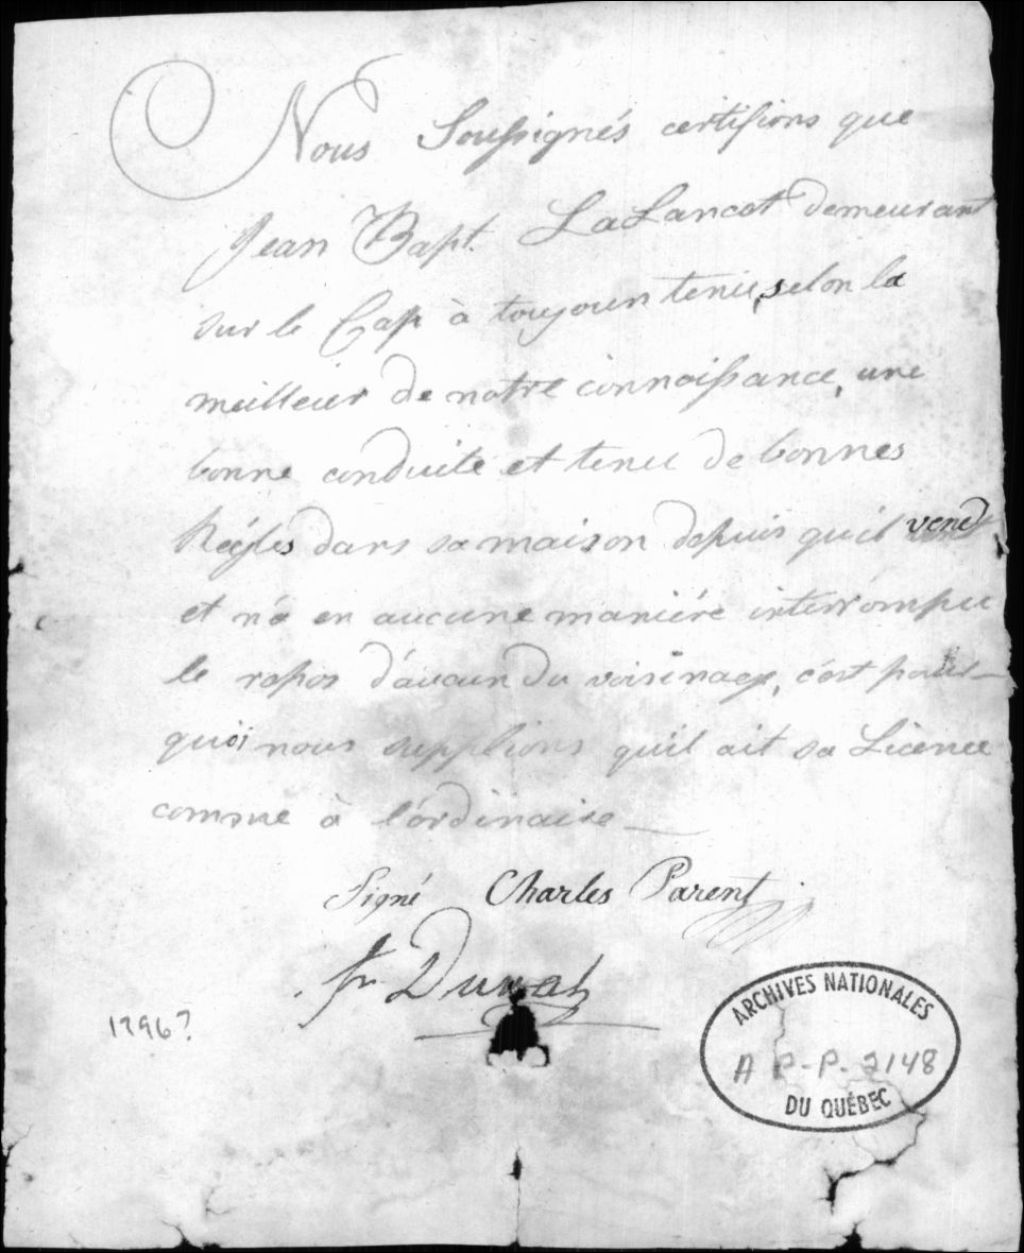 Nous Soussignés certifions que
Jean Bapt. LaLancet demeurant
sur le Cap à toujours tenu, selon la
meilleur de notre connoissance, une
bonne conduite et tenu de bonnes
Régles dans sa maison depuis qu'il vend
et n'a en aucune maniére interrompu
le repos d'aucun du voisinage, c'est pour-
quoi nous supplions qu'il ait sa Licence
comme à l'ordinaire
Signé Charles Parent
fr Duval
1796?
ARCHIVES NATIONALES
A P-P. 2148
DU QUÉBEC